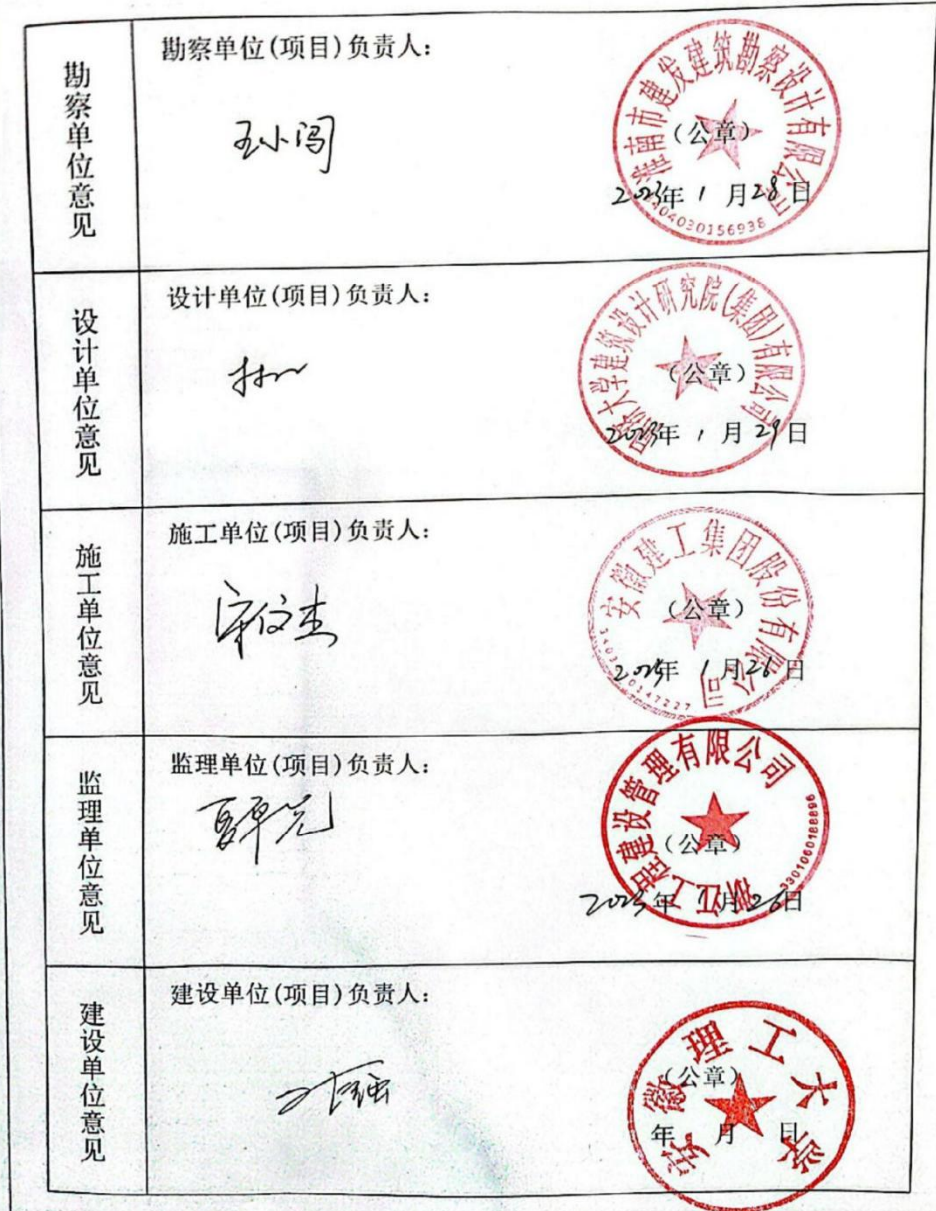 勘察单位意见
勘察单位(项目)负责人:
王小闯
淮南市建发建筑勘察设计有限公司
(公章)
2023年 1 月28日
3404030156938
设计单位意见
设计单位(项目)负责人:
同济大学建筑设计研究院(集团)有限公司
(公章)
2023年 1 月 29日
施工单位意见
施工单位(项目)负责人:
安徽建工集团股份有限公司
(公章)
年 1 月26日
监理单位意见
监理单位(项目)负责人:
浙江工程建设管理有限公司
(公章)
2023年 1 月26日
3301060188896
建设单位意见
建设单位(项目)负责人:
安徽理工大学
(公章)
年 月 日